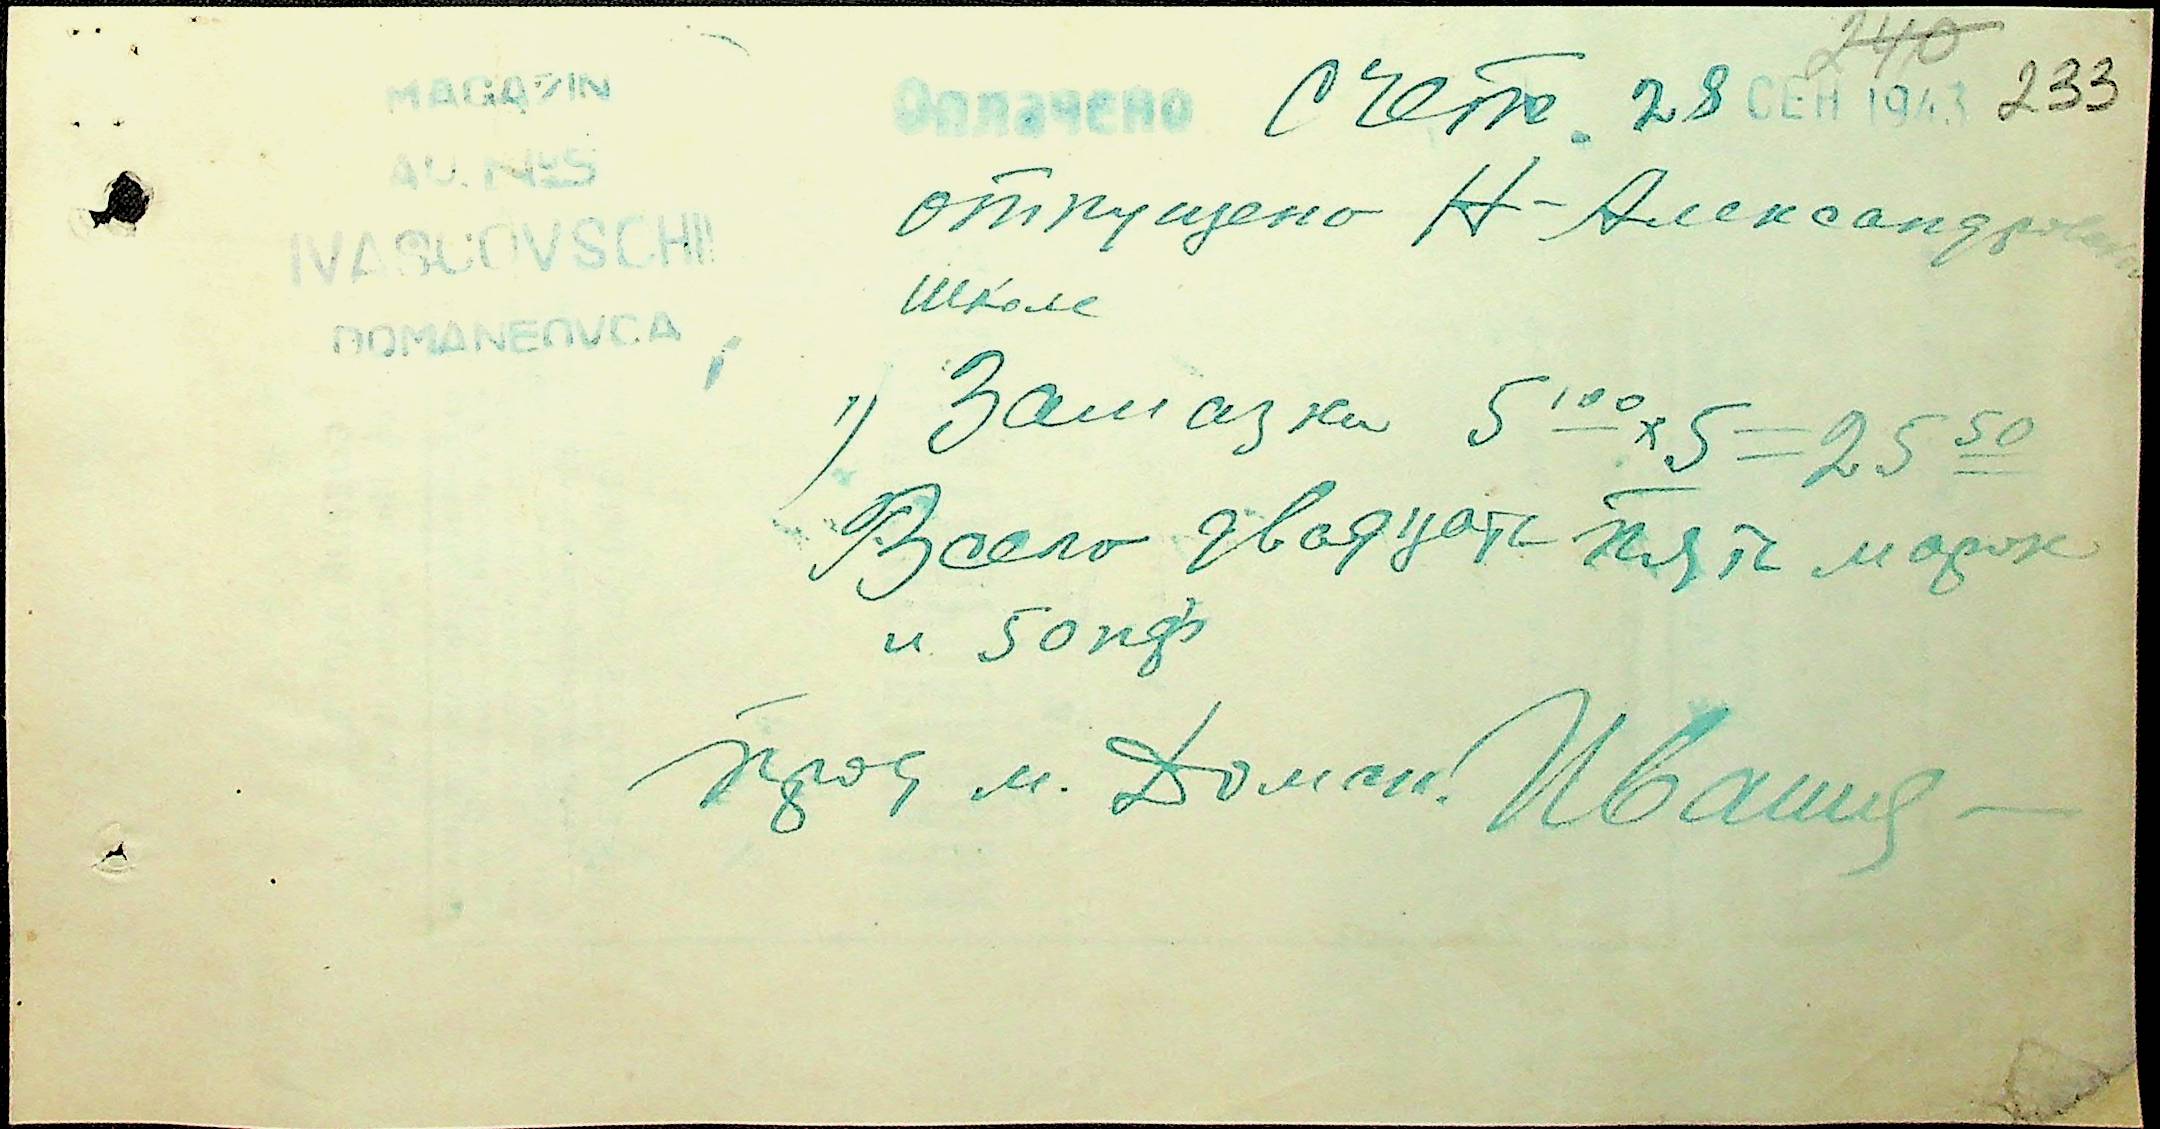 240
MAGAZIN
AU. №5
IVASCOVSCHII
DOMANEOVCA
Оплачено
Счетъ. 28 СЕН 1943 233
отпущено Н-Александровской
школе
1) Замазки 5 100 x 5 = 25 50
Всего двадцать пять марок
и 50 пф
Прод м. Доман. Иваш